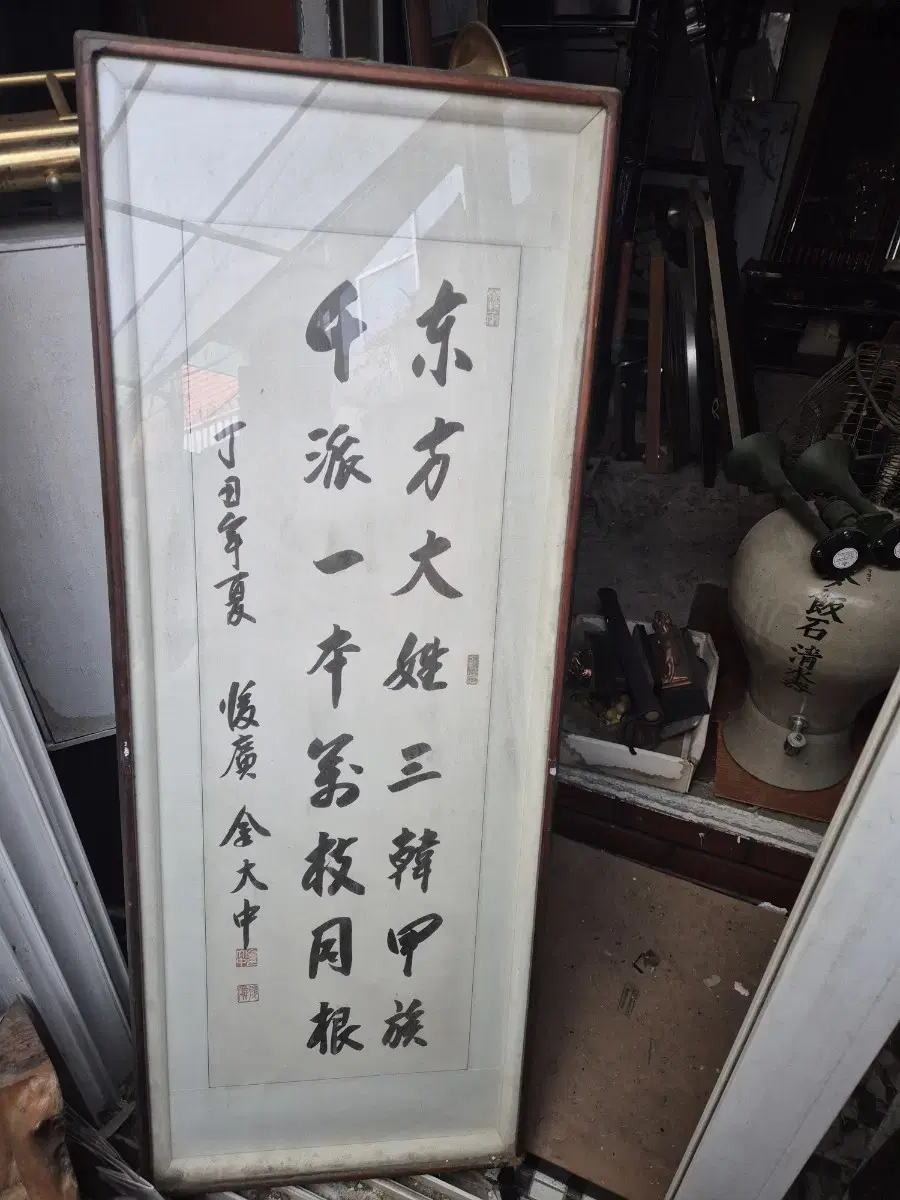 东方大姓三韓甲族
千派一本萬枝同根
丁丑年夏 後廣 金大中
飯石 清水